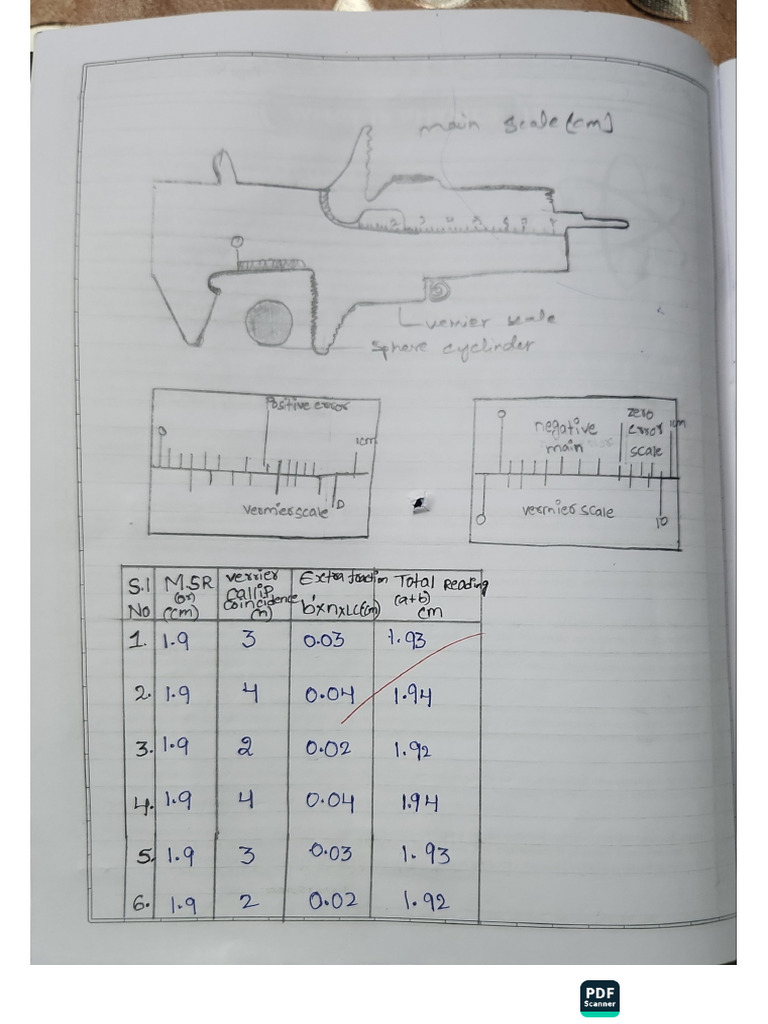 main scale (cm)
2 3 4 5 6 7
0
vernier scale
sphere cyclinder
Positive error
0
1cm
vernier scale 10
0
negative main
zero error scale
1cm
0
vernier scale
10
S.I No
M.SR (or) (cm)
verrier callip coincidence (n)
Extra fraction b'xnxLC(cm)
Total Reading (a+b) cm
1. 1.9 3 0.03 1.93
2. 1.9 4 0.04 1.94
3. 1.9 2 0.02 1.92
4. 1.9 4 0.04 1.94
5. 1.9 3 0.03 1.93
6. 1.9 2 0.02 1.92
PDF
Scanner